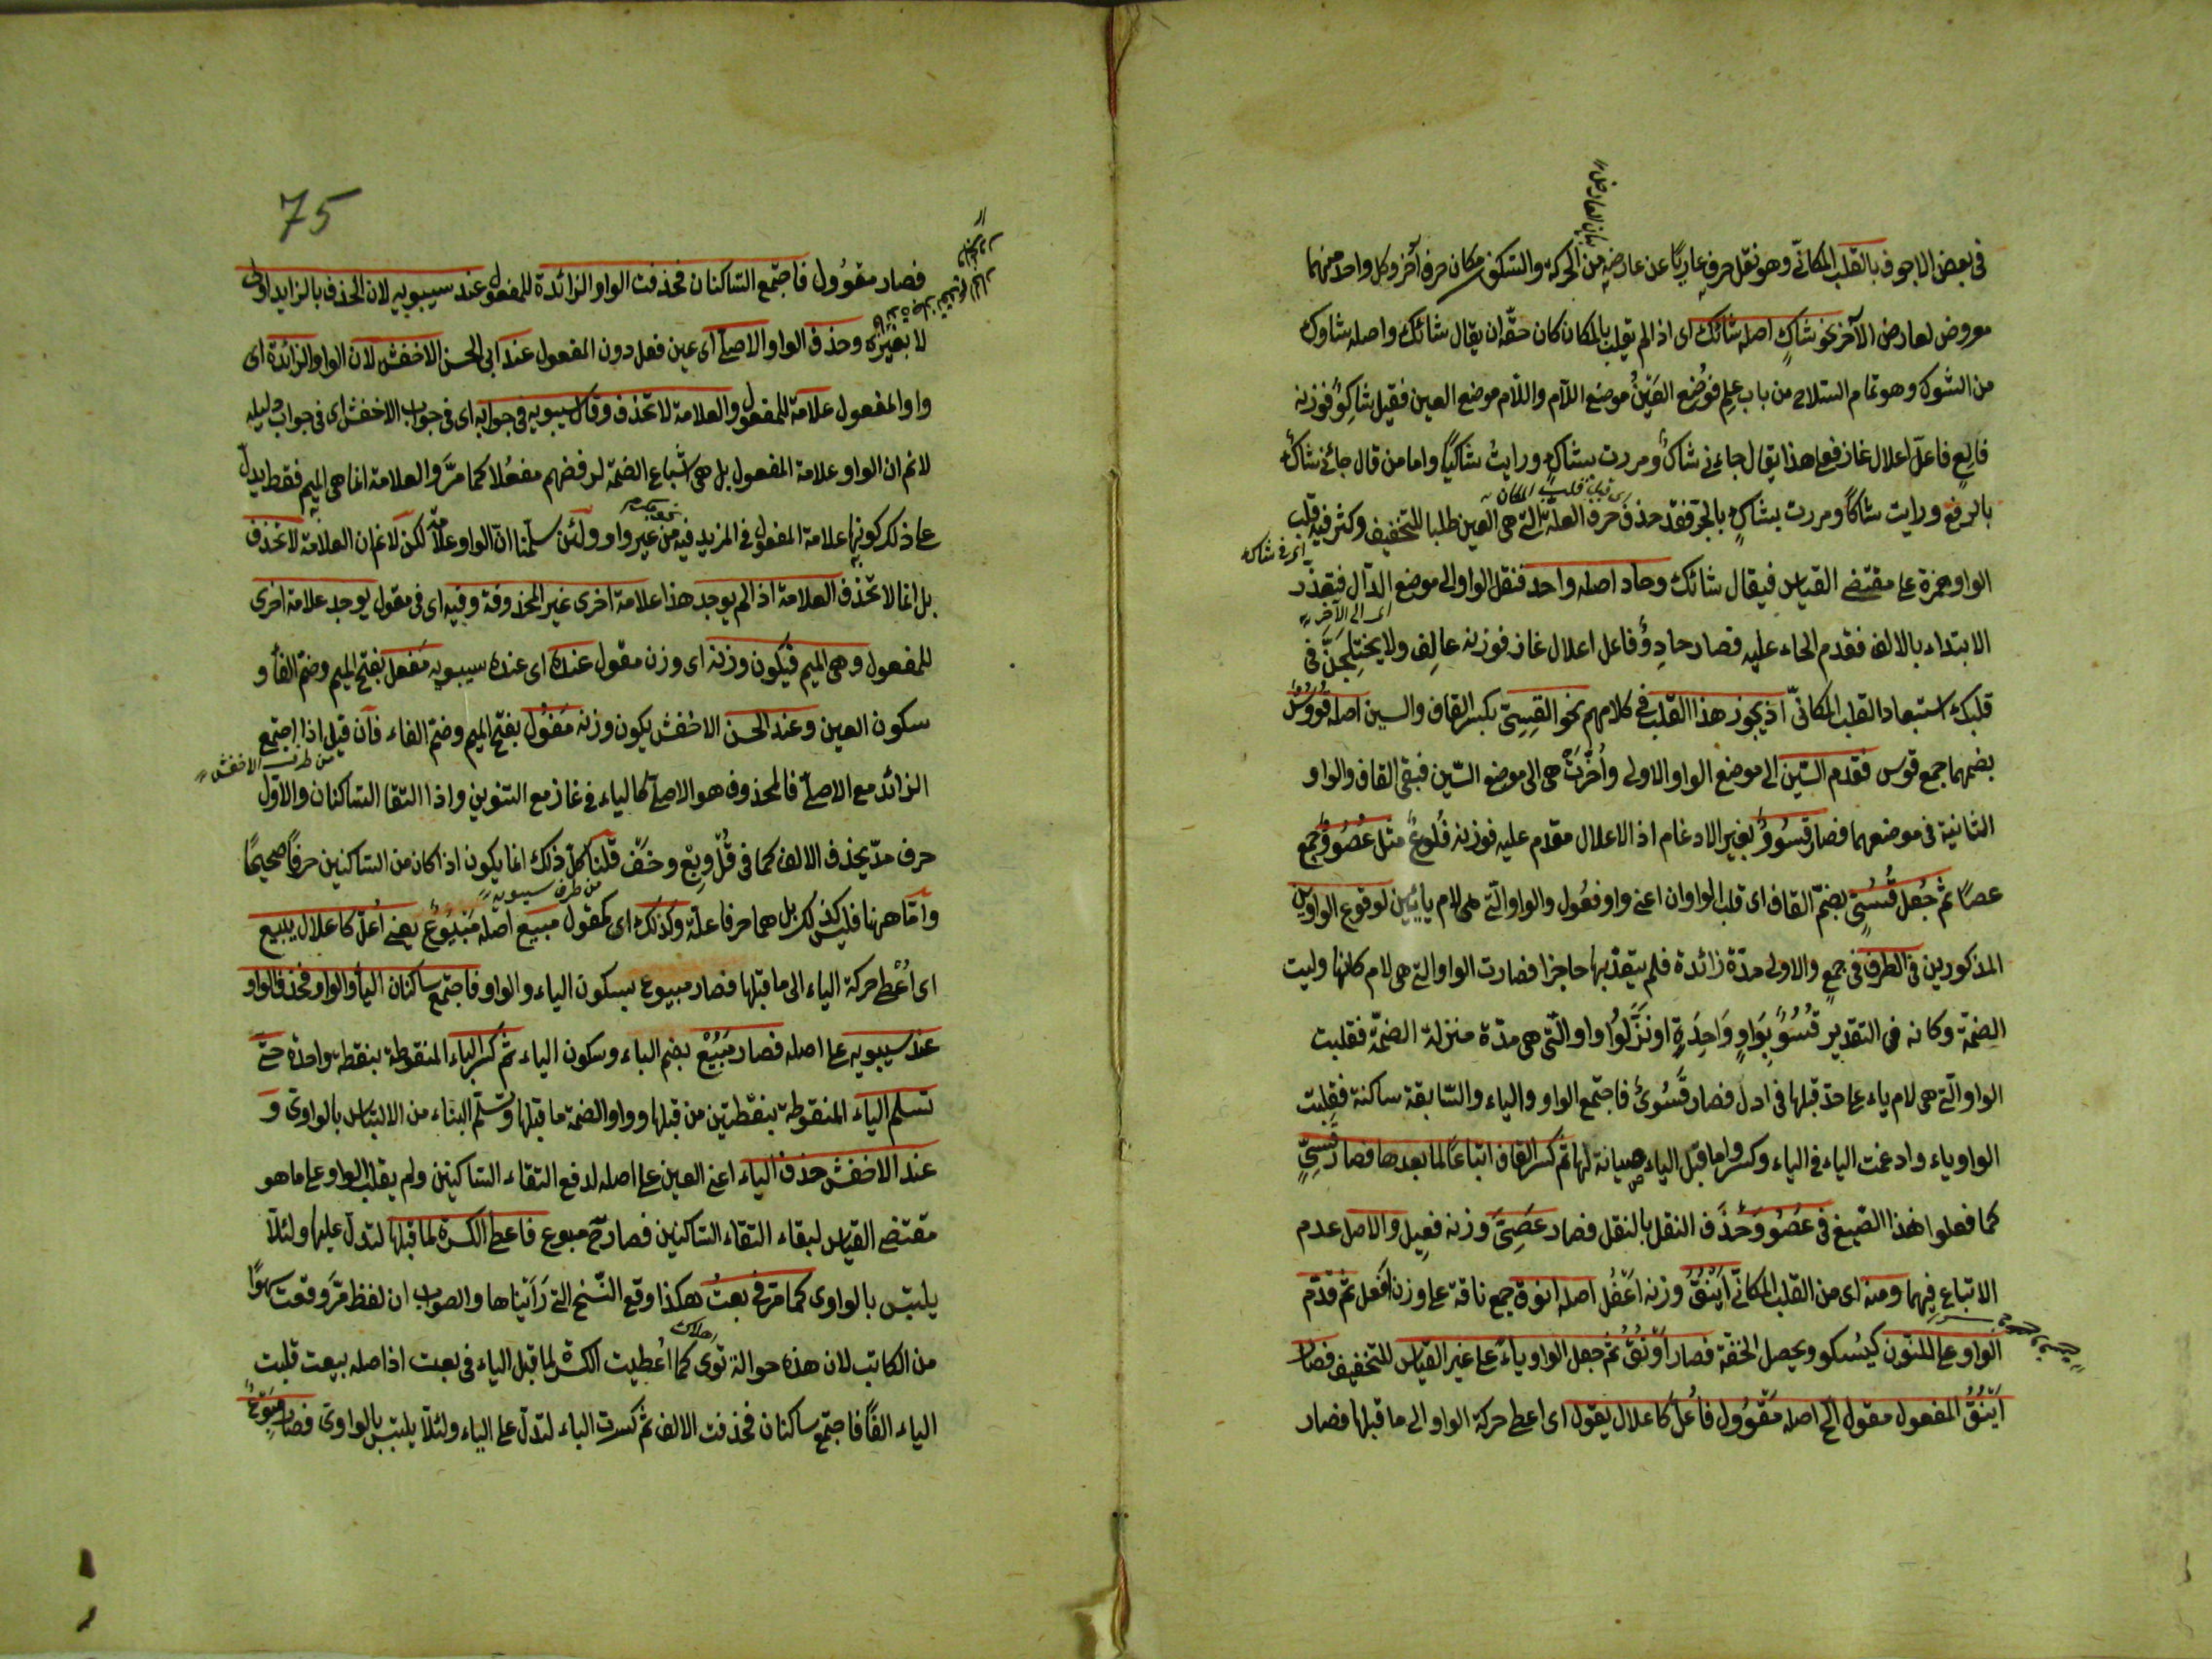 في بعض الاجوف بالقلب المكاني وهو نقل حرف عاريًا عن عارضه من الحركة والسكون مكان حرف آخر وكل واحد منهما
معروض لعارض الآخر نحو شاكٍ اصله شائك اى اذا لم يقلب بالمكان كان حقه ان يقال شائك واصله شاوك
من الشوك وهو تمام السلاح من باب علم فوُضع العين موضع اللام واللام موضع العين فقيل شاكِوٌ فوزنه
فالِعٍ فاعلّ اعلال غاز فعلى هذا يقال جاءني شاكٌ ومررت بشاكٍ ورايتُ شاكيًا واما من قال جائني شاكٌ
اى قبل قلب المكان
بالرفع ورايت شاكًا ومررت بشاكٍ بالجرّ فقد حذف حرف العلة التى هى العين طلبا للتخفيف وكثر فيه قلب
اى فى شاك
الواو همزة على مقتضى القياس فيقال شائك وحاد اصله واحد فنقل الواو الى موضع الدال فتعذر
اى الى الآخر
الابتداء بالالف فقدم الحاء عليه فصار حادِوٌ فاعل اعلال غاز فوزنه عالِف ولا يختلجنّ فى
قلبك استبعاد القلب المكانىّ اذ يجوز هذا القلب فى كلامهم نحو القِسِىّ بكسر القاف والسين اصله قُوُوسٌ
بضمهما جمع قوس فقدم السين الى موضع الواو الاولى واُخّرَتْ هى الى موضع السّين فبقى القاف والواو
الثانية فى موضعهما فصار قسُووٌ بغير الادغام اذ الاعلال مقدم عليه فوزنه فُلوعٌ مثل عُصُووٌ جمع
عصًا ثم جُعل قُسُىّ بضمّ القاف اى قلب الواوان اعنى واو فعُول والواو الّتى هى لام يائين لوقوع الواوين
المذكورين فى الطرف فى جمع والاولى مدّة زائدة فلم يعتدّ بها حاجزا فصارت الواو التى هى لام كانها وليت
الضمّة وكانه فى التقدير قُسُوٌ بِوَاوٍ وَاحِدَةٍ او نَزَّلُوا واو الّتى هى مدّة منزلة الضمّة فقلبت
الواو الّتى هى لام ياء على حدّ قبلها فى ادل فصار قُسُوىٌ فاجتمع الواو والياء والسّابقة ساكنة فقلبت
الواو ياء وادغمت الياء فى الياء وكسروا ما قبل الياء صيانة لها ثم كسر القاف اتباعًا لما بعدها فصار قِسِىٌّ
كما فعلوا هذا الصّبغ فى عصُووٌ وحُذف النقل بالنقل فصار عِصِىٌّ وزنه فعِيل والاصل عدم
الاتباع فيهما ومنه اى من القلب المكانىّ اَيْنُقٌ وزنه اَعْفُل اصله انوق جمع ناقة على وزن اَفعُل ثم قدّم
الواو على النون ليُسكن ويحصل الخفّة فصار اَوْنُقٌ ثم جعل الواو ياءً على غير القياس للتخفيف فصار
اَيْنُقٌ المفعول مقول الخ اصله مَقْوُول فاُعلّ كاعلال يقول اى اعطى حركة الواو الى ما قبلها فصار
75
فصار مقوُول فاجتمع الساكنان فحذفت الواو الزائدة للمفعول عند سيبويه لان الحذف بالزايد اولى
لا بغيره وحذف الواو الاصلى اى عين فعل دون المفعول عند ابى الحسن الاخفش لان الواو الزائدة اى
واو المفعول علامة للمفعول والعلامة لا تحذف وقال سيبويه فى جوابه اى فى جواب الاخفش اى فى جواب دليله
لانم ان الواو علامة المفعول بل هى اشباع الضمّة لرفضهم مفعُلا كما مرَّ والعلامة انما هى الميم فقط يدلّ
على ذلك كونها علامة المفعول فى المزيد فيه من غير واو ولئن سلّمنا انّ الواو علامة لكن لانم ان العلامة لا تحذف
بل انما لا تحذف العلامة اذا لم يوجد هذا علامة اخرى غير المحذوفة وفيه اى فى مقول يوجد علامة اخرى
للمفعول وهى الميم فيكون وزنه اى وزن مقول عنده اى عنده سيبويه مَفعل بفتح الميم وضم الفاء و
سكون العين وعند الحسن الاخفش يكون وزنه مَفُول بفتح الميم وضمّ الفاء فان قيل اذا اجتمع
من طرف الاخفش
الزائد مع الاصلى فالمحذوف هو الاصلى كالياء فى غاز مع التنوين واذا التقا الساكنان والاوّل
حرف مدّ يحذف الالف كما فى قُلْ وبِعْ وخَفْ قلنا كلّ ذلك انما يكون اذا كان من الساكنين حرفًا صحيحًا
من طرف سيبويه
وامّا ههنا فليس كذلك بل هما حرفا علّة وكذلك اى كمقول مبيع اصله مَبْيُوعٌ يعنى اُعلّ كاعلال يبيع
اى اُعْطى حركة الياء الى ما قبلها فصار مبيوع بسكون الياء والواو فاجتمع ساكنان الياء والواو فحذف الواو
عند سيبويه على اصله فصار مَبُيْع بضم الباء وسكون الياء ثم كسر الباء المنقوطة بنقطة واحدة حتى
تسلم الياء المنقوطة بنقطتين من قبلها واوا الضمة ما قبلها وتسلّم البناء من الالتباس بالواوى و
عند الاخفش حذف الياء اعنى العين على اصله لدفع التقاء الساكنين ولم يقلب الواو على ما هو
مقتضى القياس لبقاء التقاء الساكنين فصار ح مبوع فاعطى الكسرة لما قبلها لتدلّ عليها ولئلّا
يلتبس بالواوى كما مرّ فى بعتُ هكذا وقع النّسخ التى رَاَيْناها والصواب ان لفظ مَرَّ وقعت سهوًا
من الكاتب لان هذه حوالة توى كما اُعطيت الكسرة لما قبل الياء فى بعت اذ اصله بيعت قلبت
الياء الفًا فاجتمع ساكنان فحذفت الالف ثم كسرت الباء لتدلّ على الياء ولئلّا يلتبس بالواوى فصار مَبِوْعٌ